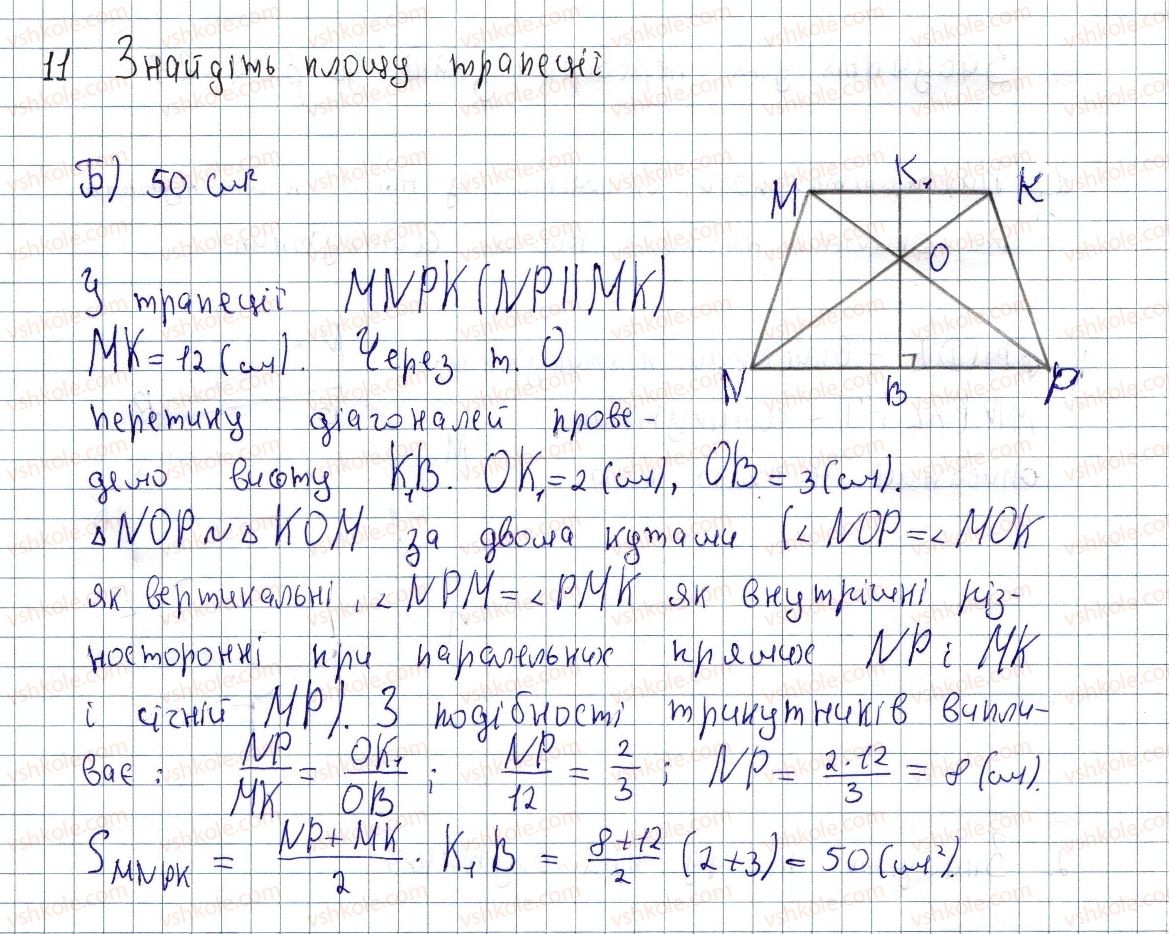 11 Знайдіть площу трапеції
Б) 50 см²
M K₁ K
O
N B P
У трапеції MNPK (NP||MK)
MK = 12 (см). Через т. O
перетину діагоналей прове-
дено висоту K₁B. OK₁ = 2 (см), OB = 3 (см).
△NOP ~ △KOM за двома кутами (∠NOP = ∠MOK
як вертикальні, ∠NPM = ∠PMK як внутрішні різ-
носторонні при паралельних прямих NP і MK
і січній MP). З подібності трикутників випли-
ває: NP/MK = OK₁/OB; NP/12 = 2/3; NP = 2·12/3 = 8 (см).
S_MNPK = (NP + MK)/2 · K₁B = (8+12)/2 (2+3) = 50 (см²).
vshkole.com